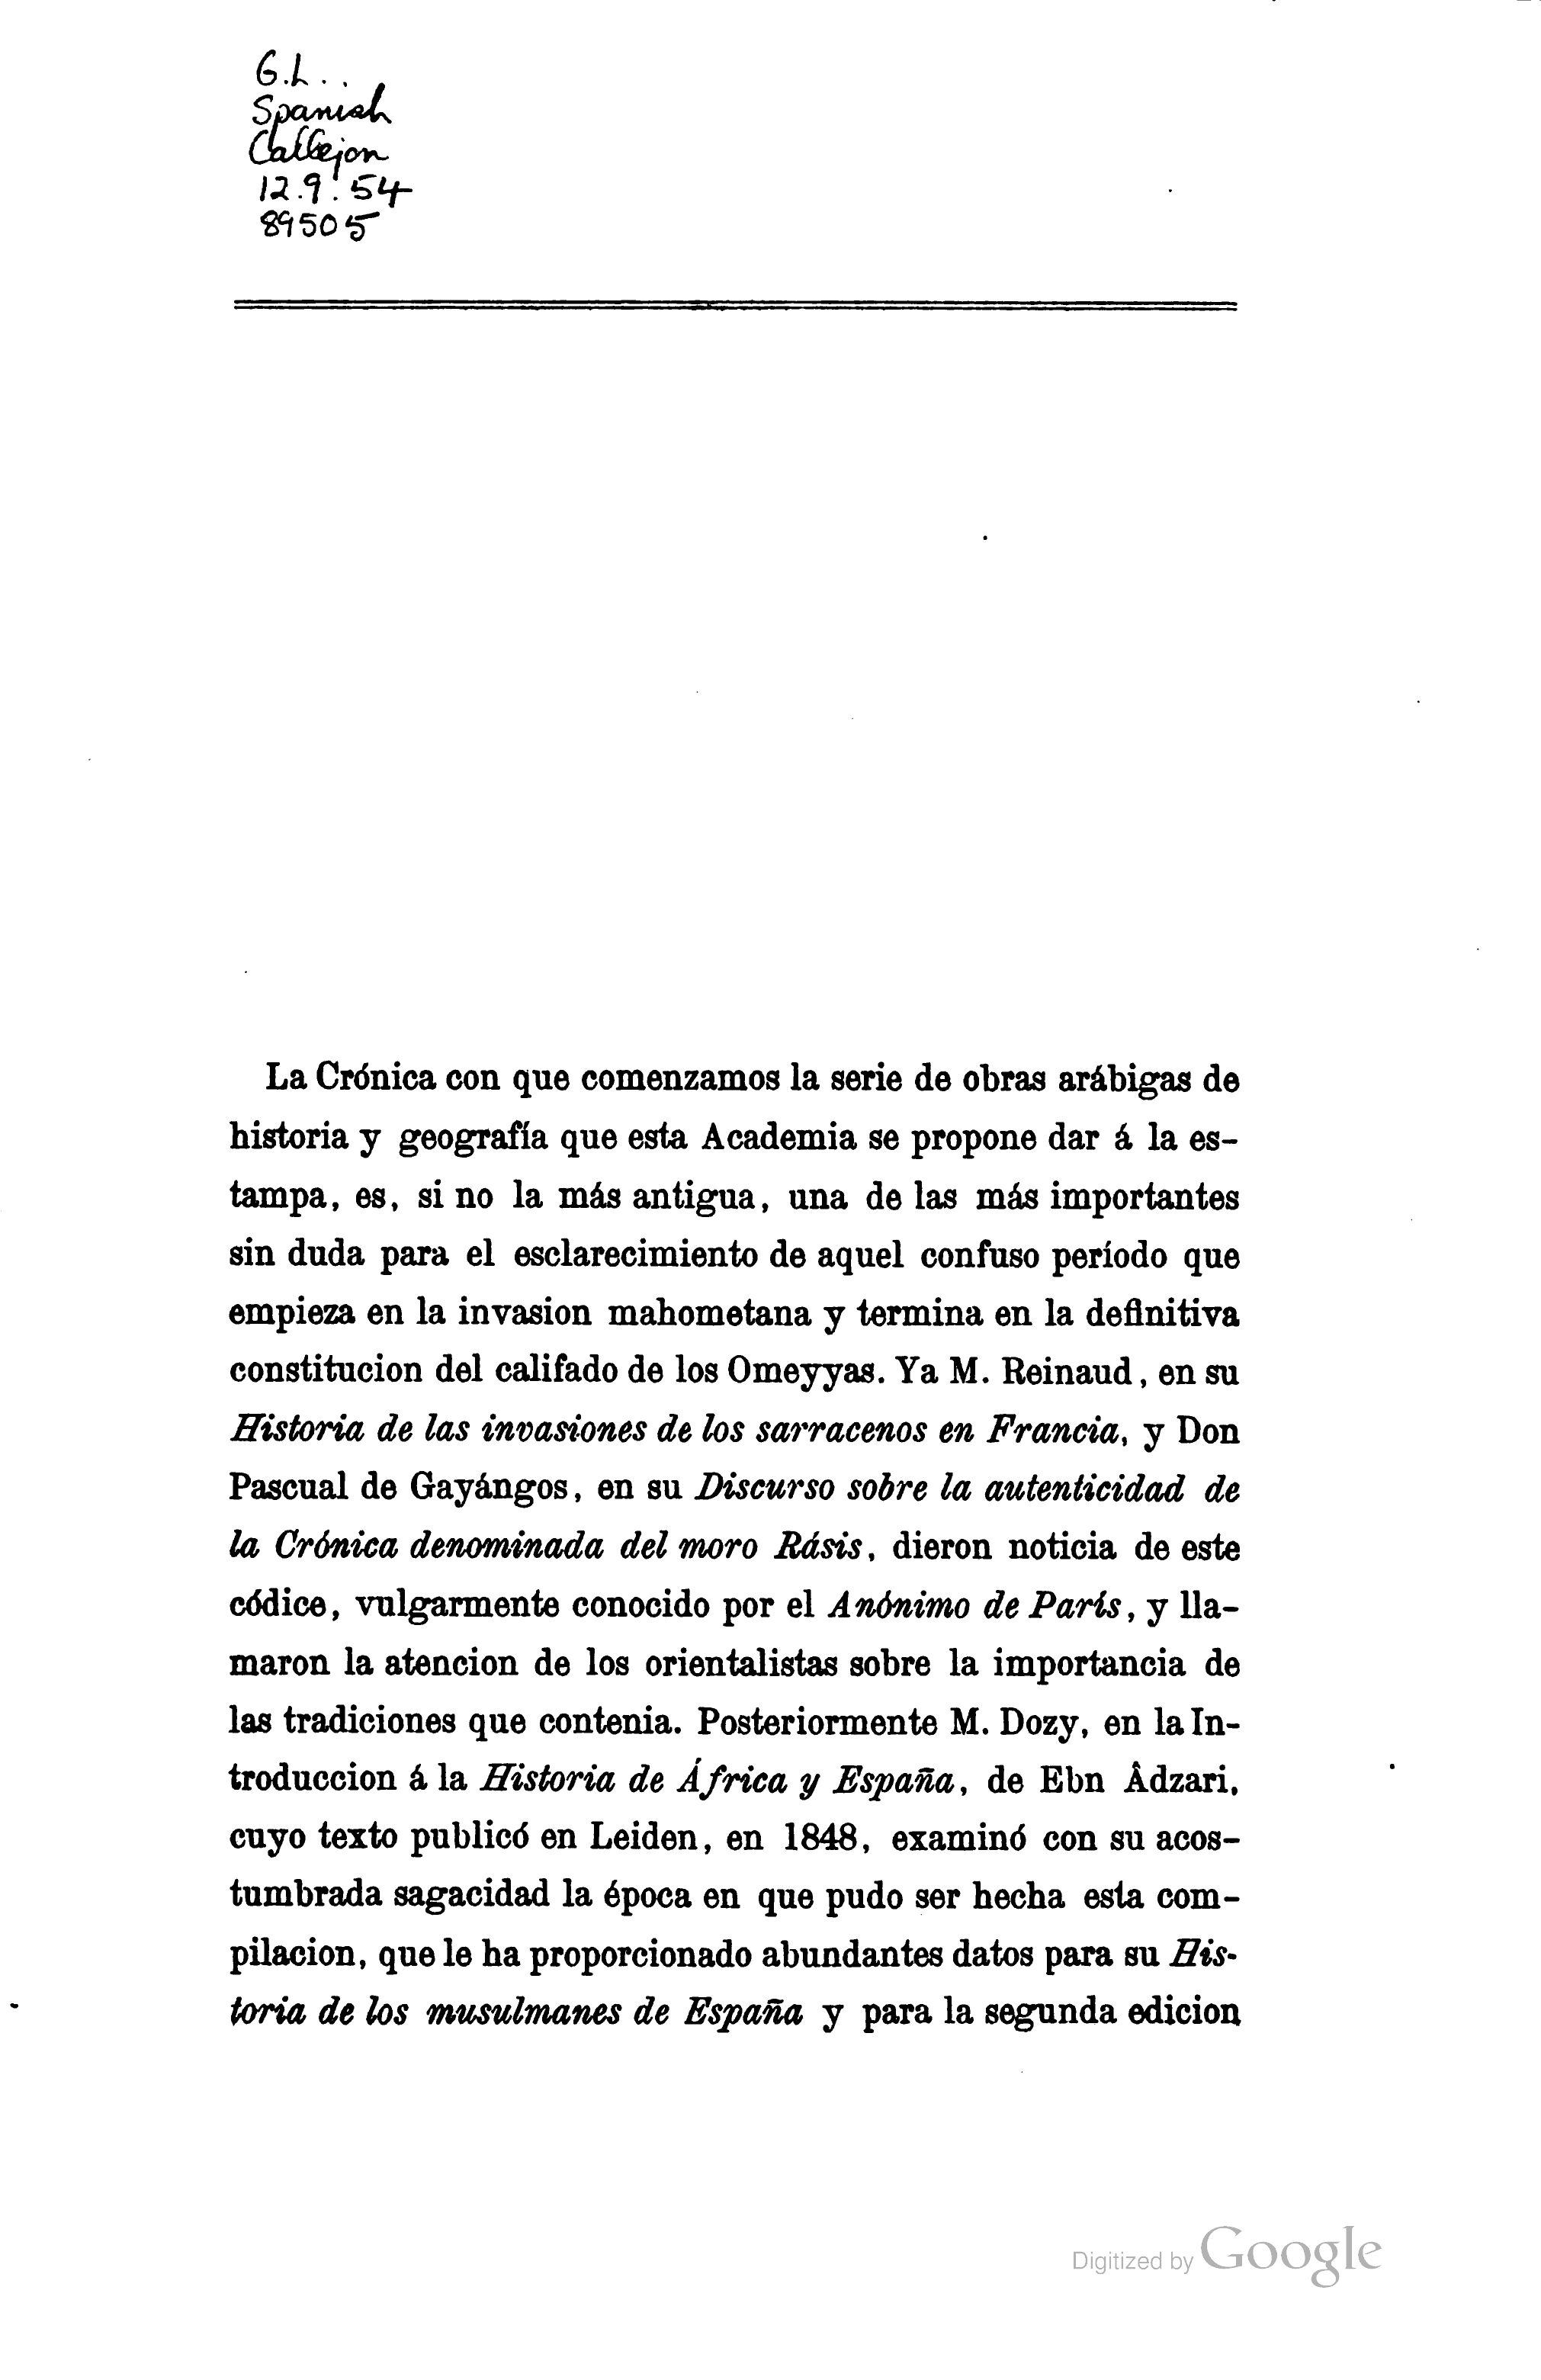 G.L..
Spanish
Callejon
12.9.54
89505
La Crónica con que comenzamos la serie de obras arábigas de
historia y geografía que esta Academia se propone dar á la es-
tampa, es, si no la más antigua, una de las más importantes
sin duda para el esclarecimiento de aquel confuso período que
empieza en la invasion mahometana y termina en la definitiva
constitucion del califado de los Omeyyas. Ya M. Reinaud, en su
Historia de las invasiones de los sarracenos en Francia, y Don
Pascual de Gayángos, en su Discurso sobre la autenticidad de
la Crónica denominada del moro Rásis, dieron noticia de este
códice, vulgarmente conocido por el Anónimo de París, y lla-
maron la atencion de los orientalistas sobre la importancia de
las tradiciones que contenia. Posteriormente M. Dozy, en la In-
troduccion á la Historia de África y España, de Ebn Âdzari,
cuyo texto publicó en Leiden, en 1848, examinó con su acos-
tumbrada sagacidad la época en que pudo ser hecha esta com-
pilacion, que le ha proporcionado abundantes datos para su His-
toria de los musulmanes de España y para la segunda edicion
Digitized by Google